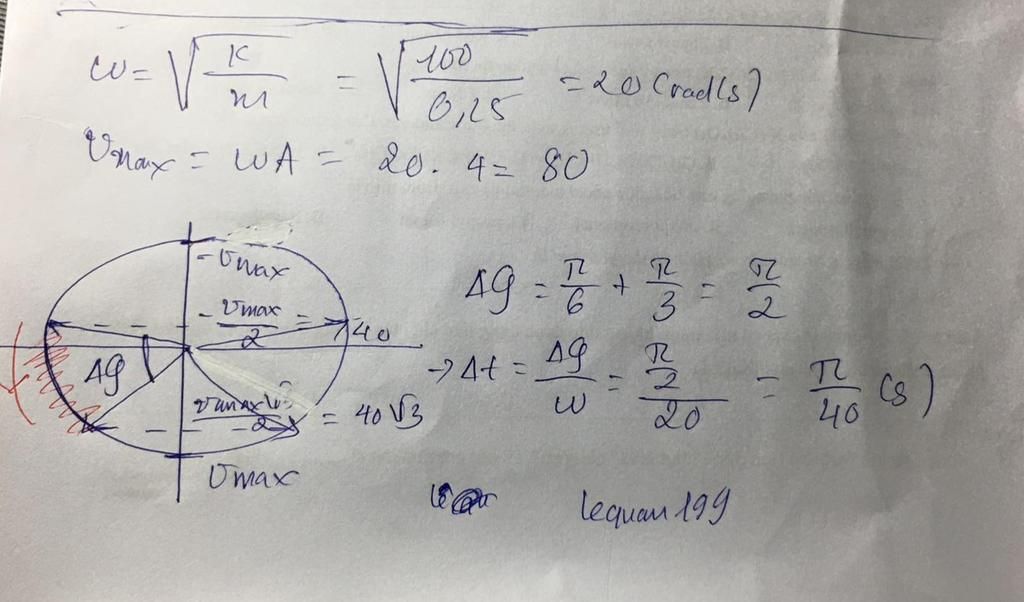 ω = √(K/m) = √(100/0,25) = 20 (rad/s)
Vmax = ωA = 20 . 4 = 80
-Vmax
-Vmax/2 = 40
Δφ
Vmax√3/2 = 40√3
Vmax
Δφ = π/6 + π/3 = π/2
→ Δt = Δφ/ω = (π/2)/20 = π/40 (s)
lequan199